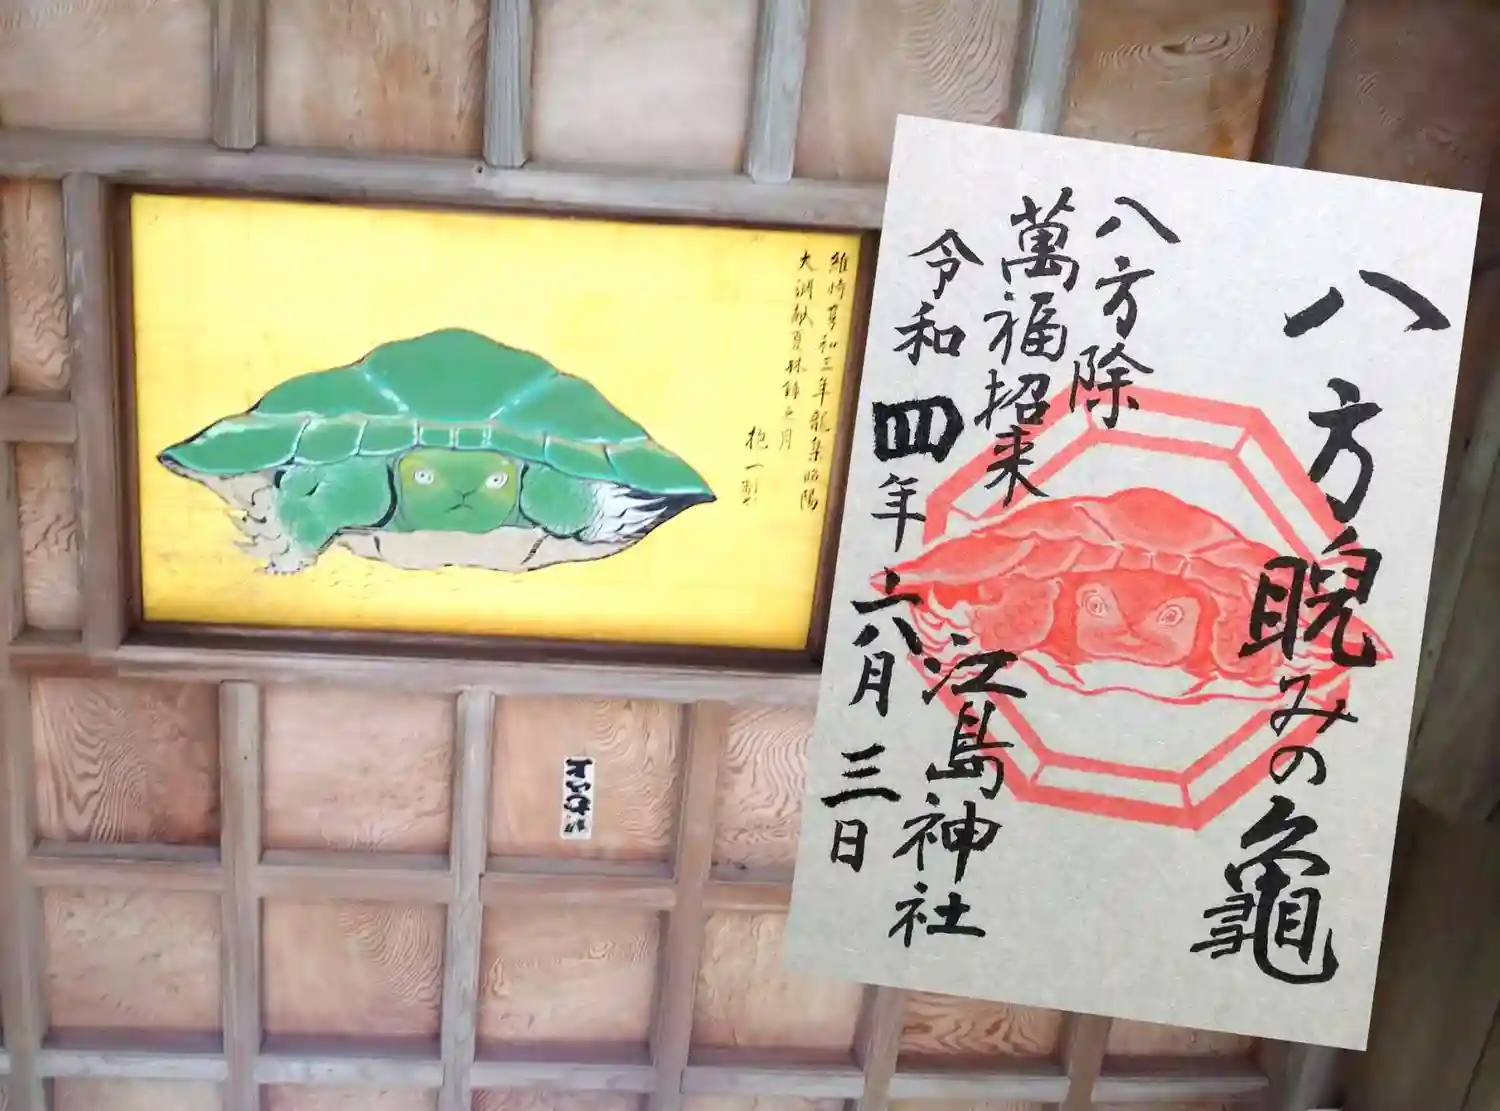 八方睨みの龜
八方除
萬福招来
江島神社
令和四年六月三日
維時享和三年龍集昭陽
大渊献夏林鐘之月
抱一製